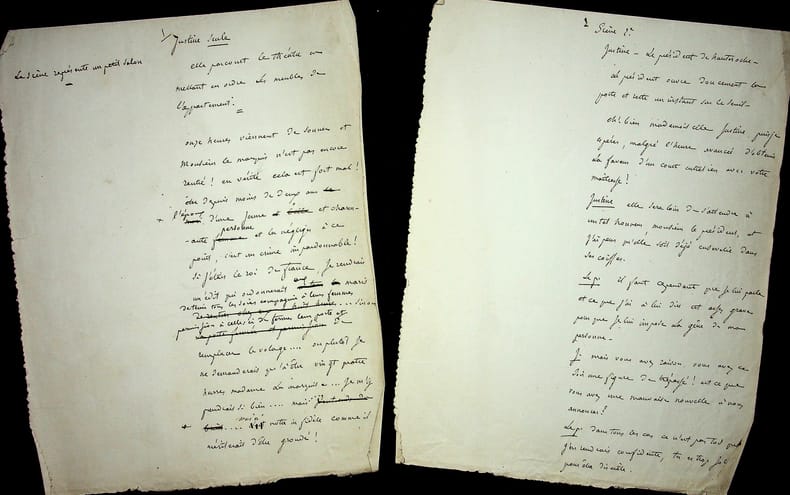 1/ Justine Seule
La Scène représente un petit salon
elle parcourt le théâtre en
mettant en ordre les meubles de
l'appartement.
onze heures viennent de sonner et
Monsieur le marquis n'est pas encore
rentré! en vérité cela est fort mal!
être depuis moins de deux ans
+ l'époux d'une jeune et charm-
-ante personne et la négliger à ce
point, c'est un crime impardonnable!
si j'étais le roi de france, je rendrais
un édit qui ordonnerait aux maris
de tenir tous les soirs compagnie à leurs femmes
permission à celles-ci de fermer leur porte et
remplacer le volage.... ou plutôt je
ne demanderais qu'à être vingt quatre
heures madame la marquise... je m'y
prendrais si bien.... mais
+ .... notre infidèle comme il
mériterait d'être grondé!
1 Scène 2.
Justine - Le président de hauteroche -
Le président ouvre doucement la
porte et reste un instant sur le seuil -
eh! bien mademoiselle Justine puis-je
espérer, malgré l'heure avancée d'obtenir
la faveur d'un court entretien avec votre
maîtresse?
Justine elle sera loin de s'attendre à
un tel honneur, monsieur le président, et
j'ai peur qu'elle soit déjà ensevelie dans
ses coiffes.
Le p. il faut cependant que je lui parle
et ce que j'ai à lui dire est assez grave
pour que je lui impose la gêne de ma
personne -
J. mais vous avez raison vous avez ce
soir une figure de trépassé! est ce que
vous avez une mauvaise nouvelle à nous
annoncer?
Le p. dans tous les cas ce n'est pas toi que
j'en rendrais confidente, tu es trop
pour être discrète.